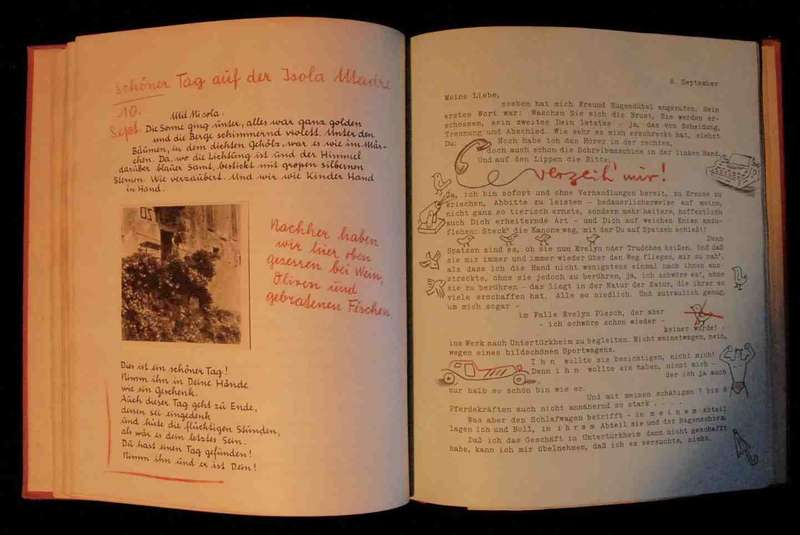 schöner Tag auf der Isola Madre
10.
Sept.
Mit Nicola.
Die Sonne ging unter, alles war ganz golden
und die Berge schimmernd violett. Unter den
Bäumen, in dem dichten Gehölz, war es wie im Mär-
chen. Da, wo die Lichtung ist und der Himmel
darüber blauer Samt, bestickt mit großen silbernen
Sternen. Wie verzaubert. Und wir wie Kinder Hand
in Hand.
Nachher haben
wir hier oben
gesessen bei Wein,
Oliven und
gebratenen Fischen
Dies ist ein schöner Tag!
Nimm ihn in Deine Hände
wie ein Geschenk.
Auch dieser Tag geht zu Ende,
dessen sei eingedenk
und hüte die flüchtigen Stunden,
als wär es dein letztes Sein.
Du hast einen Tag gefunden!
Nimm ihn und er ist Dein!
8. September
Meine Liebe,
soeben hat mich Freund Hugendübel angerufen. Sein
erstes Wort war: Waschen Sie sich die Brust, Sie werden er-
schossen, sein zweites Dein letztes - ja, das von Scheidung,
Trennung und Abschied. Wie sehr es mich erschreckt hat, siehst
Du: Noch habe ich den Hörer in der rechten,
doch auch schon die Schreibmaschine in der linken Hand.
Und auf den Lippen die Bitte:
verzeih' mir!
Ja, ich bin sofort und ohne Verhandlungen bereit, zu Kreuze zu
kriechen, Abbitte zu leisten - bedauerlicherweise auf meine,
nicht ganz so tierisch ernste, sondern mehr heitere, hoffentlich
auch Dich erheiternde Art - und Dich auf weichen Knien anzu-
flehen: Steck' die Kanone weg, mit der Du auf Spatzen schießt!
Denn
Spatzen sind es, ob sie nun Evelyn oder Trudchen heißen. Und daß
sie mir immer und immer wieder über den Weg fliegen, mir so nah',
als dass ich die Hand nicht wenigstens einmal nach ihnen aus-
streckte, ohne sie jedoch zu berühren, ja, ich schwöre es', ohne
sie zu berühren - das liegt in der Natur der Natur, die ihrer so
viele erschaffen hat. Alle so niedlich. Und zutraulich genug,
um mich sogar -
im Falle Evelyn Plesch, der aber
- ich schwöre schon wieder -
keiner wurde! -
ins Werk nach Untertürkheim zu begleiten. Nicht meinetwegen, nein,
wegen eines bildschönen Sportwagens.
I h n wollte sie besichtigen, nicht mich!
Denn i h n wollte sie haben, nicht mich -
der ich ja auch
nur halb so schön bin wie er.
Und mit meinen schäbigen
Pferdekräften auch nicht annähernd so stark . . . .
Was aber den Schlafwagen betrifft - in m e i n e m Abteil
lagen ich und Böll, in i h r e m Abteil sie und der Regenschirm.
Daß ich das Geschäft in Untertürkheim dann nicht geschafft
habe, kann ich mir übelnehmen, daß ich es versuchte, nicht.